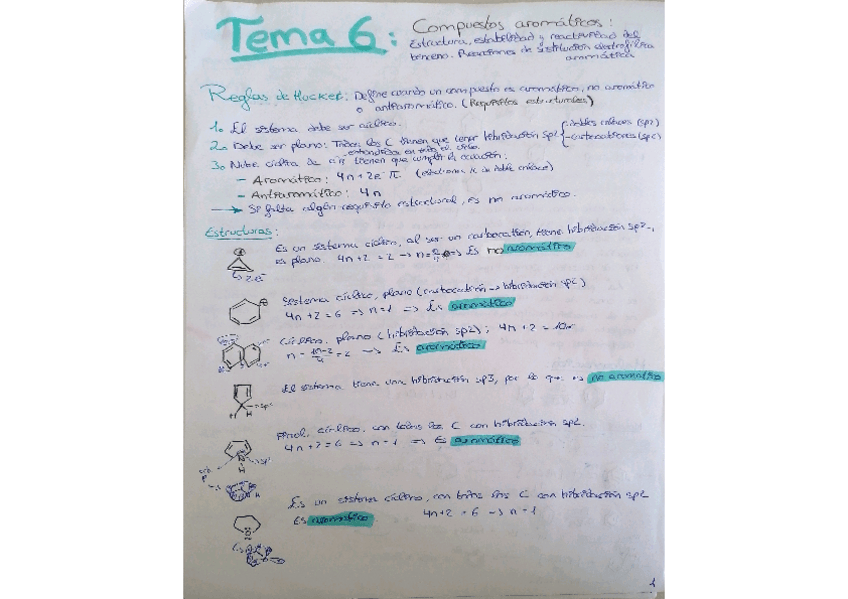 Tema 6:
Compuestos aromáticos:
Estructura, estabilidad y reactividad del
benceno. Reacciones de sustitución electrofílica
aromática
Reglas de Huckel: Define cuando un compuesto es aromático, no aromático
o antiaromático. (Requisitos estructurales)
1. El sistema debe ser cíclico.
2. Debe ser plano: Todos los C tienen que tener hibridación sp2
dobles enlaces (sp2)
carbocationes (sp2)
3. Nube cíclica de e- π tienen que cumplir la ecuación:
- Aromático: 4n + 2e π. (doble enlace)
- Antiaromático: 4n
→ Si falta algún requisito estructural, es no aromático.
Estructuras:
Es un sistema cíclico, al ser un carbocatión, tiene hibridación sp2,
es plano 4n + 2 = 2 → Es no aromático
2e-
Sistema cíclico, plano (carbocatión → hibridación sp2)
4n + 2 = 6 => n = 1 => Es aromático
Cíclico, plano (hibridación sp2); 4n + 2 = 10
n = = 2 → Es aromático
El sistema tiene una hibridación sp3, por lo que es no aromático
H H sp3
cíclico, con todos los C con hibridación sp2.
4n + 2 = 6 => n = 1 => Es aromático
N
H
Es un sistema cíclico, con todos los C con hibridación sp2
Es aromático 4n + 2 = 6 → n = 1
1